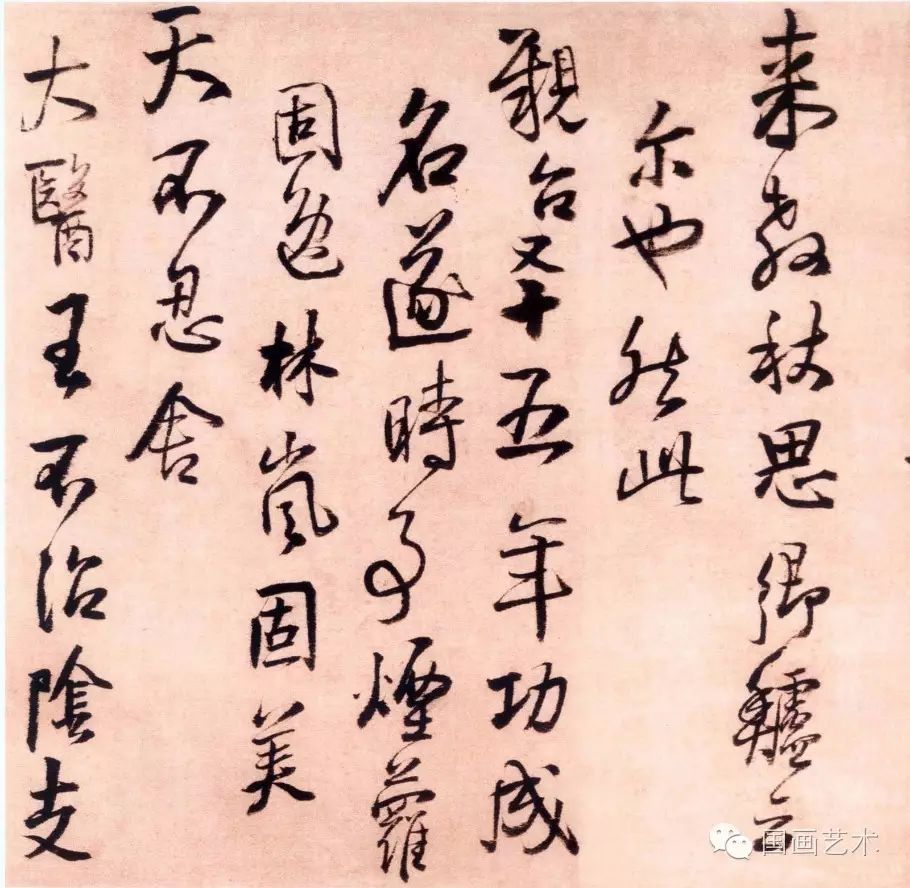 来教秋思鄉鱸云
尔也然此
親五年功成
名遂時事煙蘿
固林嵐固美
天不忍舍
大醫王不治陰支
国画艺术